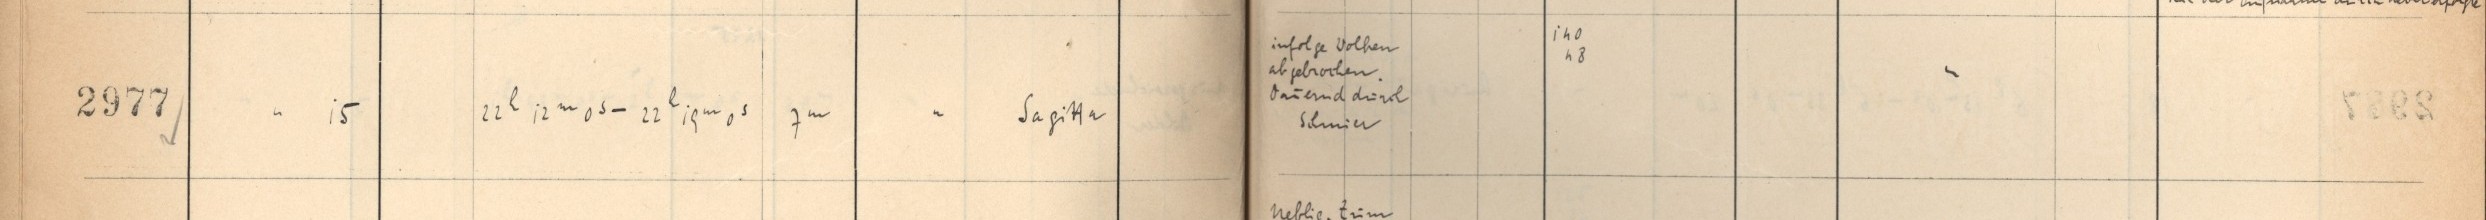 2977 " 15 22h 12m 0s – 22h 19m 0s 7m " Sagitta
infolge Wolken
abgebrochen.
Dauernd durch
Schmier
ih0
h8
"
Neblig. Zum